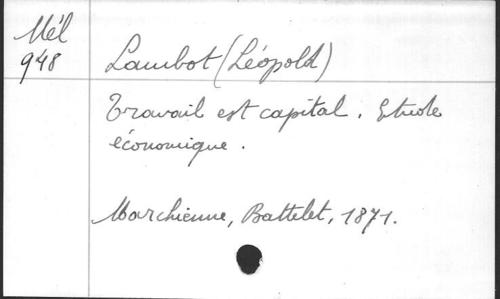 Mél
948
Lambot (Léopold)
Travail est capital. Etude
économique.
Marchienne, Battelet, 1871.